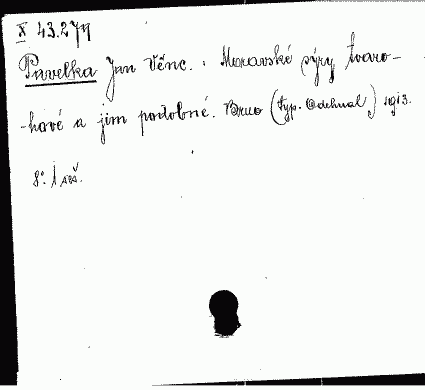 X 43.279
Pavelka Jan Věnc. : Moravské sýry tvaro-
-hové a jim podobné. Brno (typ. Odehnal) 1913.
8°.